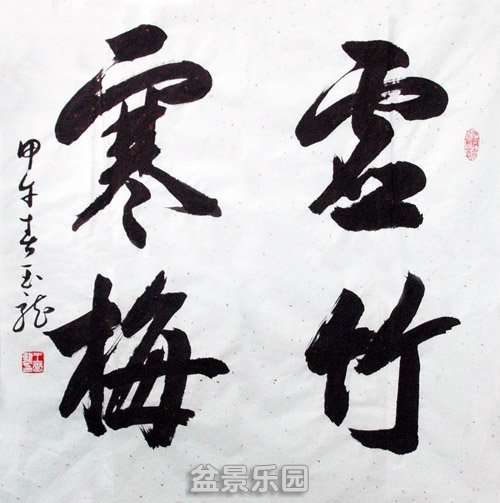 虚竹
寒梅
甲午春玉龙
盆景乐园